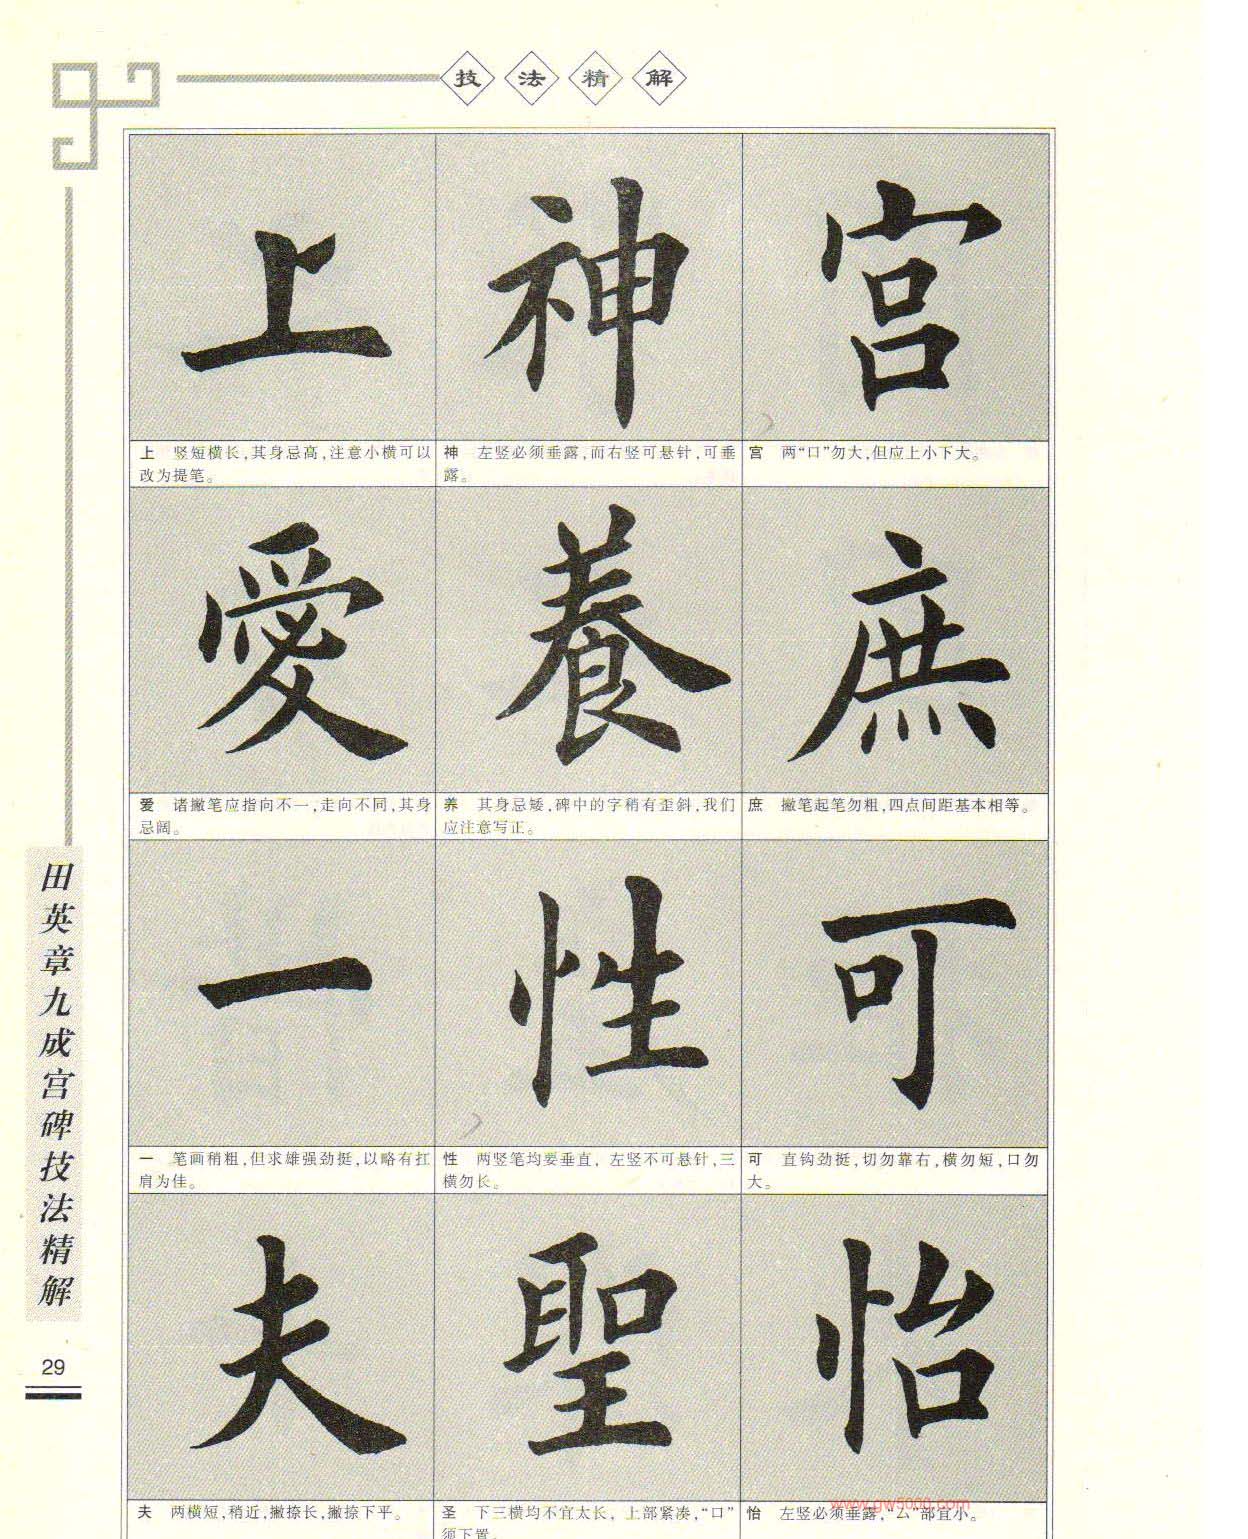 技法精解
上 神 宫
上 竖短横长,其身忌高,注意小横可以
改为提笔。
神 左竖必须垂露,而右竖可悬针,可垂
露。
宫 两“口”勿大,但应上小下大。
愛 養 庶
爱 诸撇笔应指向不一,走向不同,其身
忌阔。
养 其身忌矮,碑中的字稍有歪斜,我们
应注意写正。
庶 撇笔起笔勿粗,四点间距基本相等。
一 性 可
一 笔画稍粗,但求雄强劲挺,以略有扛
肩为佳。
性 两竖笔均要垂直,左竖不可悬针,三
横勿长。
可 直钩劲挺,切勿靠右,横勿短,口勿
大。
夫 聖 怡
夫 两横短,稍近,撇捺长,撇捺下平。
圣 下三横均不宜太长,上部紧凑,“口”
须下置。
怡 左竖必须垂露,“厶”部宜小。
www.gw5000.com
田英章九成宫碑技法精解
29